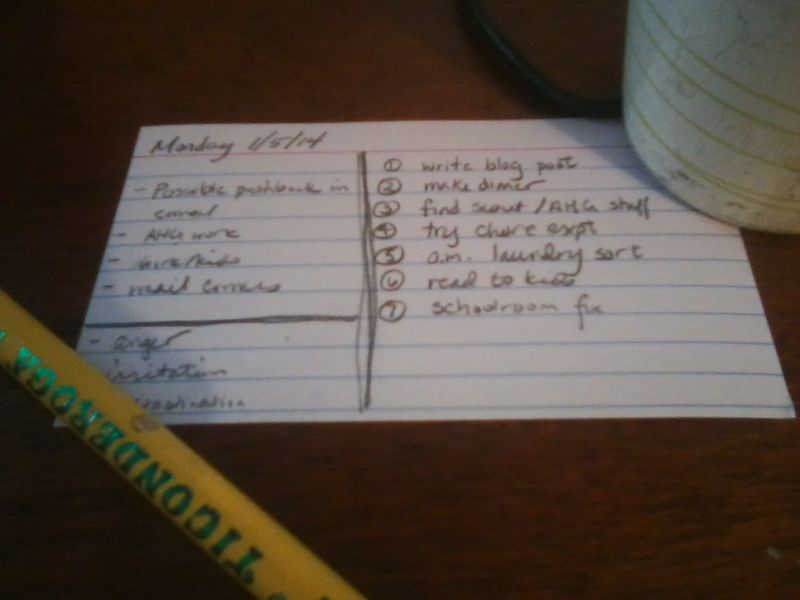 Monday 1/5/14
- Possible pushback in
email
- AHG work
- mail
- anger
irritation
① write blog post
② make dinner
③ find scout / AHG stuff
④ try chore expt
⑤ a.m. laundry sort
⑥ read to kids
⑦ schoolroom fix
TICONDEROGA